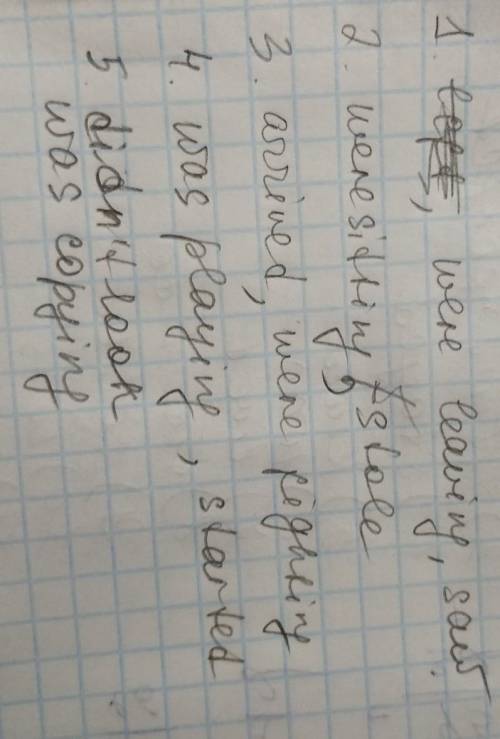 1. were leaving, saw.
2. were sitting, stole
3. arrived, were fighting
4. was playing, started
5. didn't look
was copying